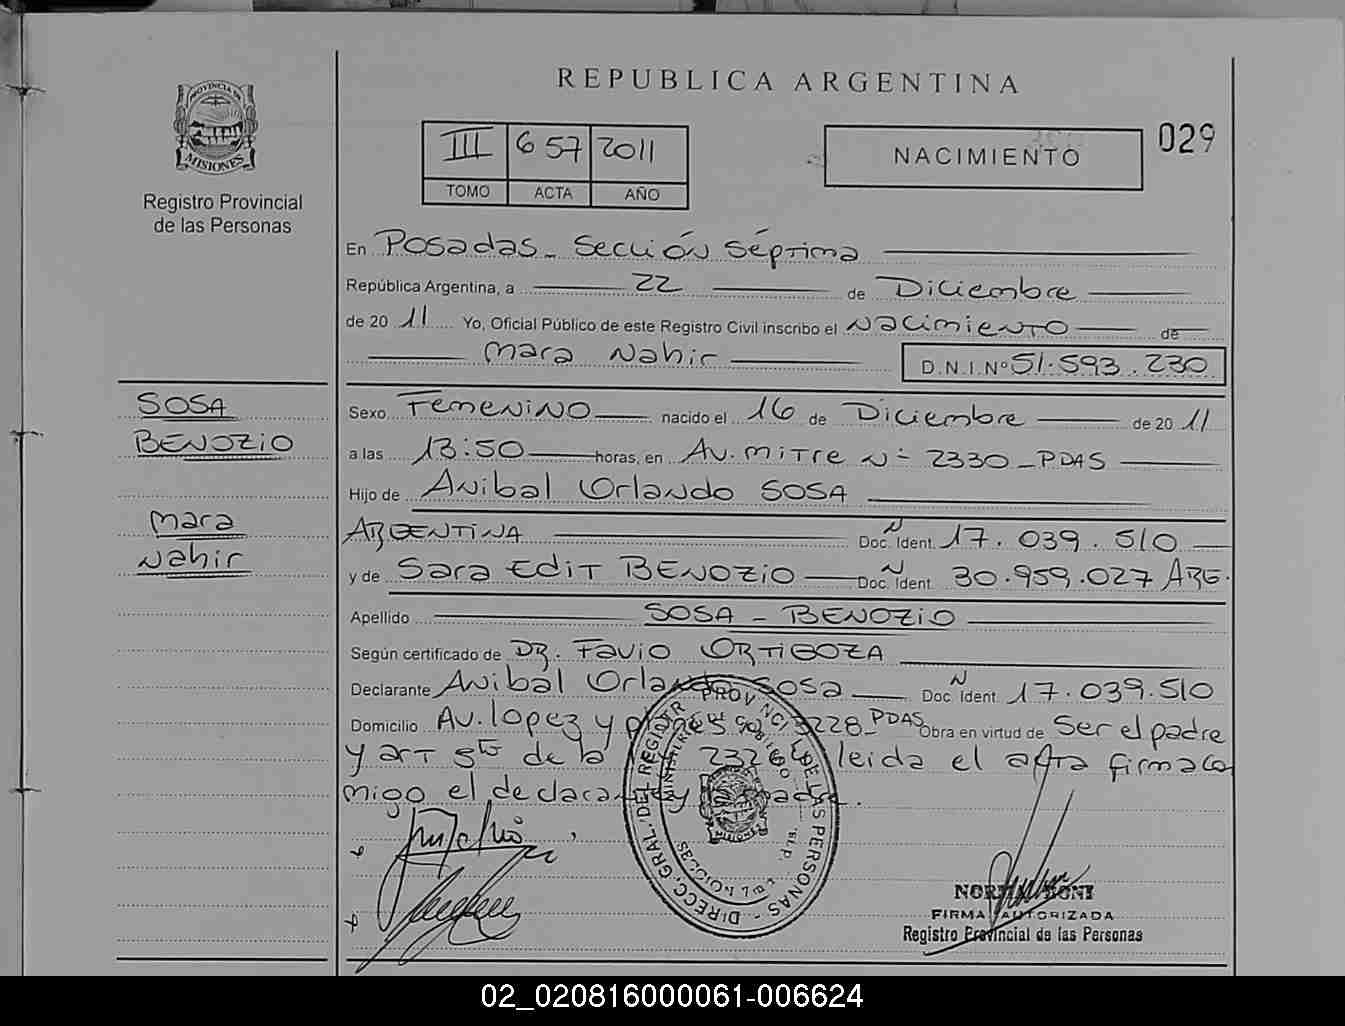 REPUBLICA ARGENTINA
PROVINCIA DE
MISIONES
Registro Provincial
de las Personas
III 657 2011
TOMO ACTA AÑO
NACIMIENTO
029
En Posadas - Sección Séptima
República Argentina, a 22 de Diciembre
de 20 11 Yo, Oficial Público de este Registro Civil inscribo el Nacimiento de
Mara Nahir D.N.I.Nº 51.593.230
SOSA
BENOZIO
Mara
Nahir
Sexo Femenino nacido el 16 de Diciembre de 20 11
a las 13:50 horas, en Av. Mitre Nº 2330 - PDAS
Hijo de Anibal Orlando SOSA
ARGENTINA Doc. Ident. 17.039.510
y de Sara Edit BENOZIO Doc. Ident. 30.959.027 ARG.
Apellido SOSA - BENOZIO
Según certificado de DR. Favio ORTIGOZA
Declarante Anibal Orlando Sosa Doc Ident. 17.039.510
Domicilio Av. lopez y planes 3228 PDAS Obra en virtud de Ser el padre
y art 5to de la 2326 leida el acta firma co
migo el declarante y la madre.
DIRECC. GRAL. DEL REGISTR. PROVINCIAL DE LAS PERSONAS
MISIONES
NORMA BONI
FIRMA AUTORIZADA
Registro Provincial de las Personas
02_020816000061-006624